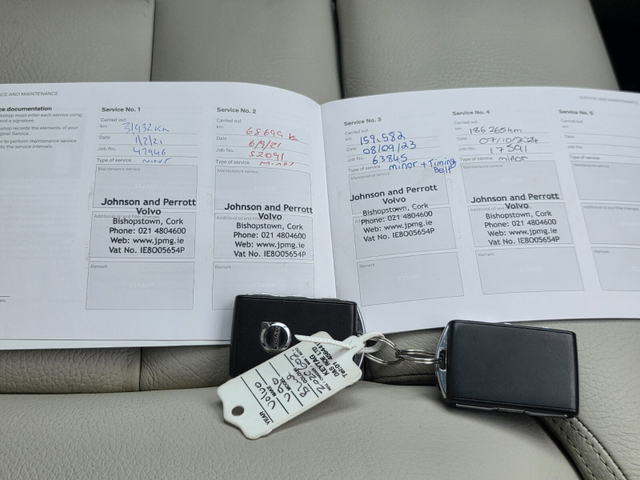 CE AND MAINTENANCE
ce documentation
Service No. 1
Carried out
km 31432km
Date 1/2/21
Job No. 47946
Type of service minor
Maintenance service
Johnson and Perrott
Volvo
Bishopstown, Cork
Phone: 021 4804600
Web: www.jpmg.ie
Vat No. IE8O05654P
Remark
Service No. 2
Carried out
km
Date 6/9/21
Job No. 52091
Type of service minor
Maintenance service
Johnson and Perrott
Volvo
Bishopstown, Cork
Phone: 021 4804600
Web: www.jpmg.ie
Vat No. IE8O05654P
Remark
Service No. 3
Carried out
km 159,582
Date 08/09/23
Job No. 63845
Type of service minor + Timing
belt
Maintenance service
Johnson and Perrott
Volvo
Bishopstown, Cork
Phone: 021 4804600
Web: www.jpmg.ie
Vat No. IE8O05654P
Remark
Service No. 4
Carried out
186265km
Date
Job No. 17591
Type of service minor
Maintenance service
Johnson and Perrott
Volvo
Bishopstown, Cork
Phone: 021 4804600
Web: www.jpmg.ie
Vat No. IE8O05654P
Remark
Service No. 5
Carried out
Date
Job No.
Type of service
Maintenance service
Remark
VOLVO
D&S NIX LTD
KEYTAG
YEAR
MAKE Volvo
MODEL V90